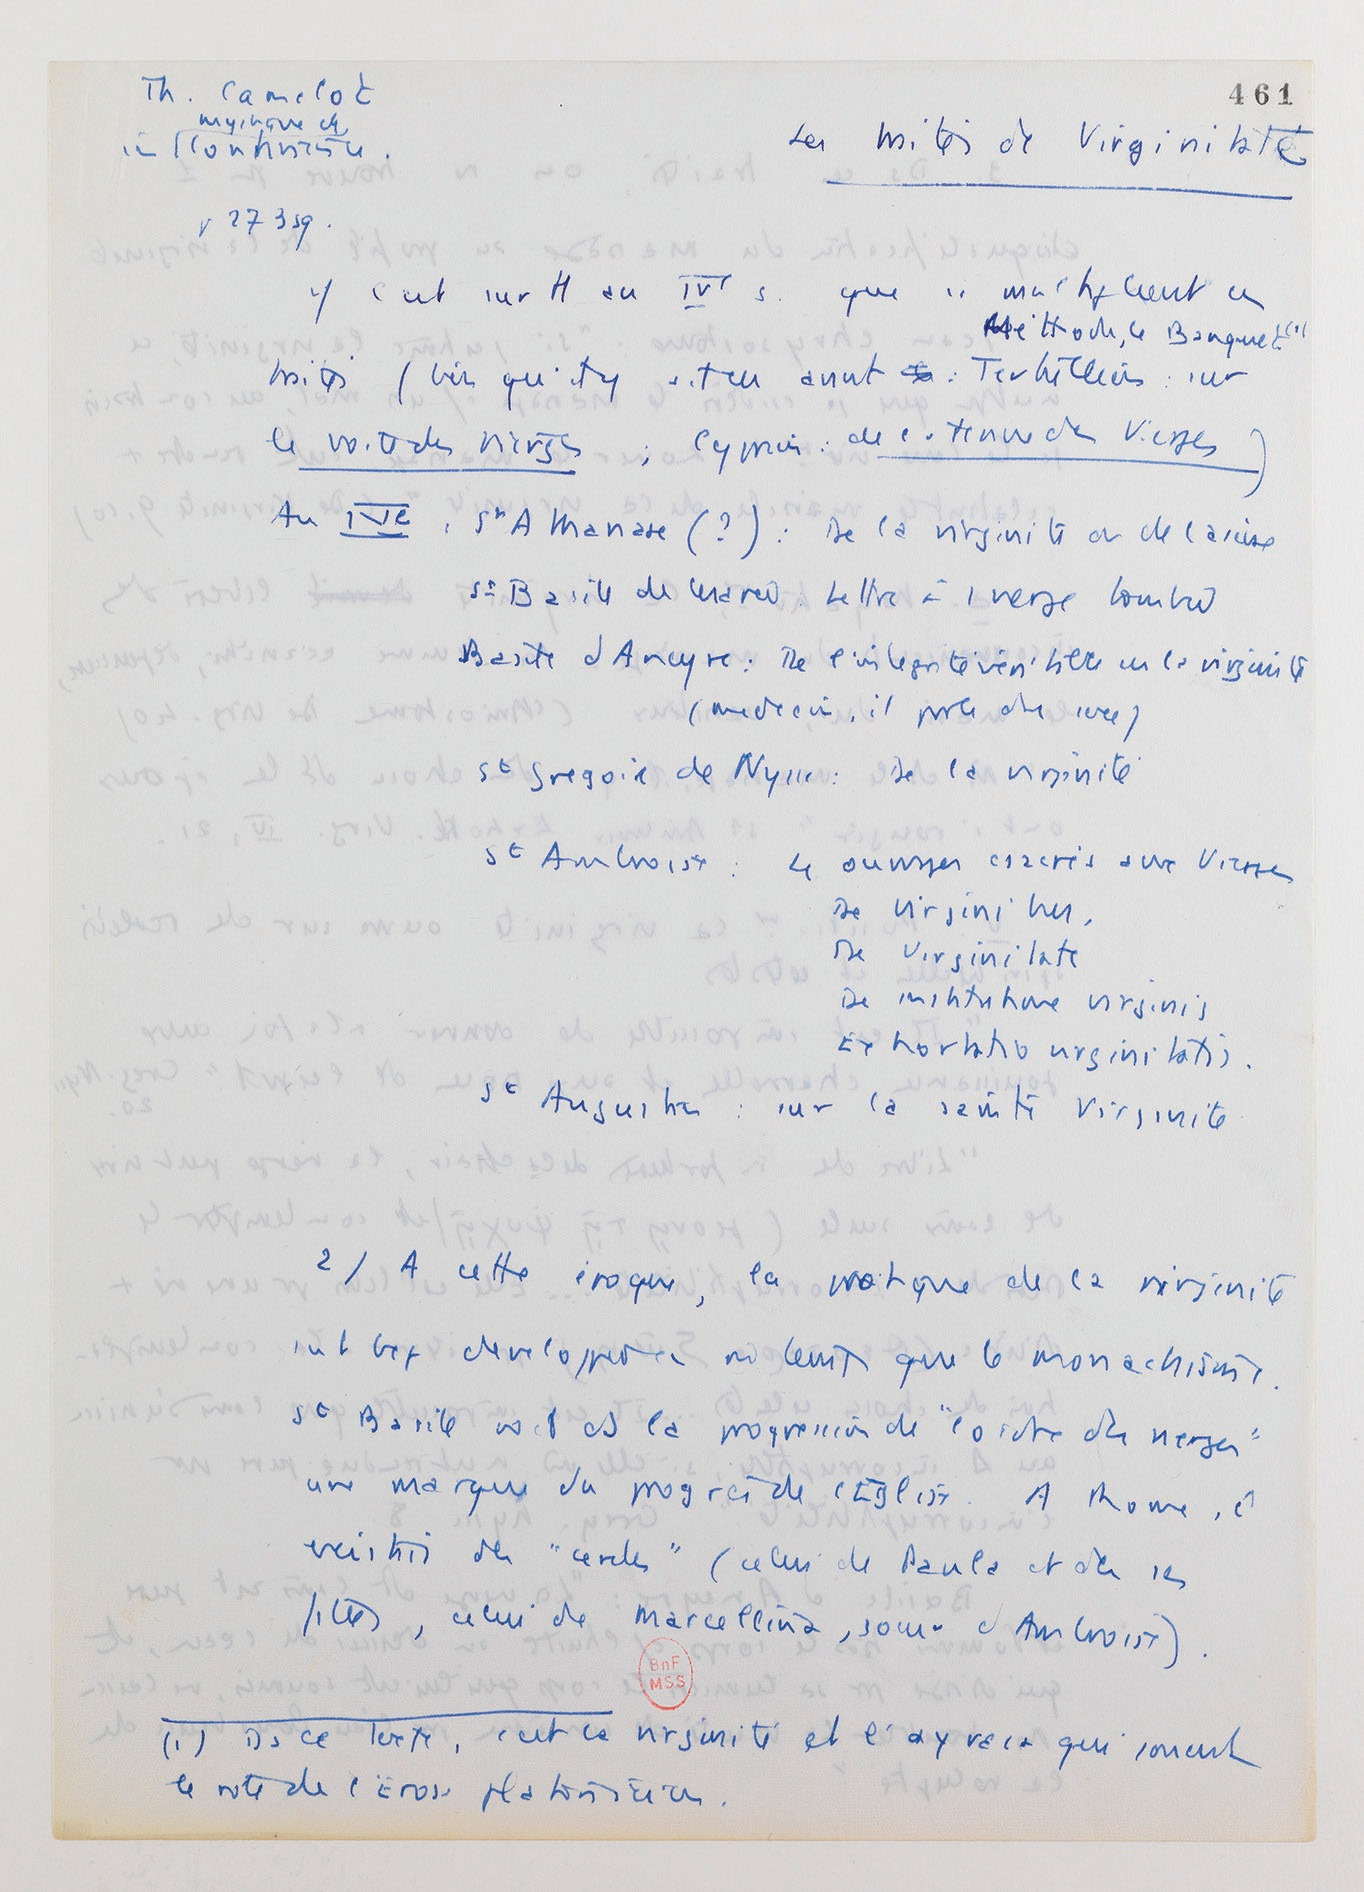 461
Th. Camelot
mystique et
in Continence.
p 273 sq.
Les traités de Virginité
1/ C'est surtt au IVe s. que se multiplient les
Méthode, le Banquet (1)
traités (bien qu'il y en ait eu avant : Tertullien : sur
le voile des vierges ; Cyprien : de la tenue des Vierges)
Au IVe : St Athanase (?) : De la virginité ou de l'ascèse
St Basile de Césarée. Lettre à 1 vierge tombée
Basile d'Ancyre : De l'intégrité véritable de la virginité
(médecin, il parle des)
St Grégoire de Nysse : De la virginité
St Ambroise : 4 ouvrages consacrés aux Vierges
De virginibus,
De Virginitate
De institutione virginis
Exhortatio virginitatis.
St Augustin : sur la sainte Virginité
2/ A cette époque, la pratique de la virginité
s'est bcp développée en même tps que le monachisme.
St Basile voit ds la progression de "l'ordre des vierges"
une marque du progrès de l'Eglise. A Rome, il
existait des "cercles" (celui de Paula et de ses
filles, celui de Marcellina, soeur d'Ambroise).
BnF
MSS
(1) Ds ce texte, c'est la virginité et l' qui jouent
le rôle de l'Eros platonicien.